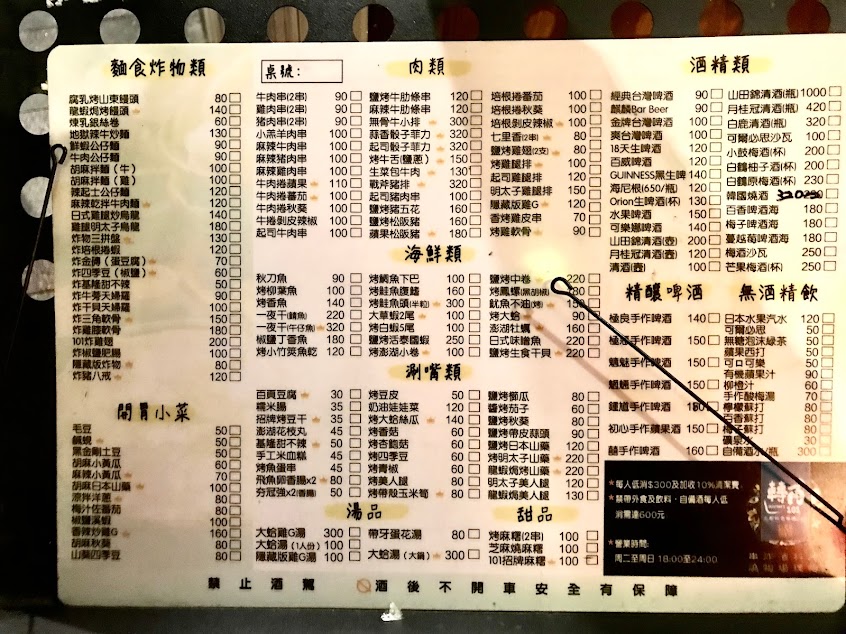 麵食炸物類
腐乳烤山東饅頭 80
龍蝦焗烤饅頭 140
煉乳銀絲卷 60
地獄辣牛炒麵 130
鮮蝦公仔麵 90
牛肉公仔麵 90
胡麻拌麵(牛) 180
胡麻拌麵(雞)
辣起士公仔麵
麻辣乾拌牛肉麵
日式雞腿炒烏龍 140
雞腿明太子烏龍 180
炸物三拼盤 130
炸培根捲蝦 120
炸金磚(蛋豆腐) 70
炸四季豆(椒鹽) 60
炸基隆甜不辣 50
炸牛蒡天婦羅
炸干貝天婦羅
炸三角軟骨 150
炸雞膝軟骨 180
101炸雞翅 200
炸椒鹽肥腸 100
隱藏版炸物 80
炸豬八戒 120
開胃小菜
毛豆 50
鹹蜆 50
黑金剛土豆 50
胡麻小黃瓜 60
麻辣小黃瓜 60
胡麻日本山藥 100
涼拌洋蔥 80
梅汁佐番茄 60
椒鹽溪蝦 100
香辣炒雞G 160
胡麻秋葵 80
山葵四季豆 80
桌號:
肉類
牛肉串(2串) 90
雞肉串(2串) 90
豬肉串(2串) 90
小羔羊肉串 100
麻辣牛肉串 100
麻辣豬肉串 100
麻辣雞肉串 100
牛肉捲蘋果 110
牛肉捲番茄 100
牛肉捲秋葵 100
牛捲剝皮辣椒 100
起司牛肉串 100
鹽烤牛肋條串 120
麻辣牛肋條串 120
無骨牛小排 300
蒜香骰子菲力 320
起司骰子菲力 320
烤牛舌(鹽蔥) 150
生菜包牛肉 130
戰斧豬排 320
起司豬肉串 100
鹽烤豬五花 160
鹽烤松阪豬 160
蘋果松阪豬 180
培根捲番茄 100
培根捲秋葵 100
培根剝皮辣椒 100
七里香(2串) 80
鹽烤雞翅(2支) 80
烤雞腿排 100
起司雞腿排 120
明太子雞腿排 150
隱藏版雞G 120
香烤雞皮串 70
烤雞軟骨 90
海鮮類
秋刀魚 90
烤柳葉魚 100
烤香魚 140
一夜干(鯖魚) 220
一夜干(午仔魚) 320
椒鹽丁香魚 180
烤小竹筴魚乾 120
烤鯛魚下巴 100
烤鮭魚腹鰭 160
烤鮭魚頭(半粒) 300
大草蝦2尾 100
烤白蝦5尾 100
鹽烤活泰國蝦 250
烤澎湖小卷 100
鹽烤中卷 220
烤鳳螺(黑胡椒) 280
魷魚不油(烤)
烤大蛤 90
澎湖牡蠣 160
日式味噌魚 220
鹽烤生食干貝 220
涮嘴類
百頁豆腐 30
糯米腸 35
招牌烤豆干 35
澎湖花枝丸 45
基隆甜不辣 50
手工米血糕 45
烤魚蛋串 45
飛魚卵香腸x2 80
夯冠強x2(香腸) 50
烤豆皮 50
奶油娃娃菜 120
烤大蛤絲瓜 140
烤香菇 60
烤杏鮑菇 60
烤四季豆 60
烤青椒 60
烤美人腿 80
烤帶殼玉米筍 80
鹽烤櫛瓜 80
醬烤茄子 60
鹽烤秋葵 80
鹽烤帶皮蒜頭 90
鹽烤日本山藥 120
烤明太子山藥 220
龍蝦焗烤山藥 220
明太子美人腿 120
龍蝦焗美人腿 130
湯品
大蛤雞G湯 300
大蛤湯(1人份) 100
隱藏版雞G湯 100
帶牙蛋花湯 80
大蛤湯(大鍋) 300
甜品
烤麻糬(2串) 100
芝麻燒麻糬 100
101招牌麻糬 100
酒精類
經典台灣啤酒 90
麒麟Bar Beer 90
金牌台灣啤酒 90
爽台灣啤酒 100
18天生啤酒 120
百威啤酒 120
GUINNESS黑生啤 140
海尼根(650/瓶) 120
Orion生啤酒(杯) 130
水果啤酒 150
可樂娜啤酒 140
山田錦清酒(壺) 200
月桂冠清酒(壺) 120
清酒(壺) 100
山田錦清酒(瓶) 1000
月桂冠清酒(瓶) 420
白鹿清酒(瓶) 320
可爾必思沙瓦 100
小鼓梅酒(杯) 200
白鶴柚子酒(杯) 180
白鶴原梅酒(杯) 230
韓國燒酒
百香啤酒海 180
梅子啤酒海 180
蔓越莓啤酒海 180
梅酒沙瓦 250
芒果梅酒(杯) 250
精釀啤酒
極良手作啤酒 140
手作啤酒 150
魑魅手作啤酒 150
魍魎手作啤酒 150
鍾馗手作啤酒
初心手作蘋果酒 150
囍手作啤酒 160
無酒精飲
日本水果汽水 120
可爾必思 50
無糖泡沫綠茶 50
蘋果西打 50
可口可樂 50
有機蘋果汁 90
柳橙汁 60
手作酸梅湯 70
檸檬蘇打 80
蘇打 80
梅子蘇打 80
礦泉水 30
自備酒水/瓶 300
＊每人低消$300及加收10%清潔費.
＊禁帶外食及飲料，自備酒每人低
消需達600元
＊營業時間:
周二至周日 18:00至24:00
禁止酒駕 酒後不開車安全有保障